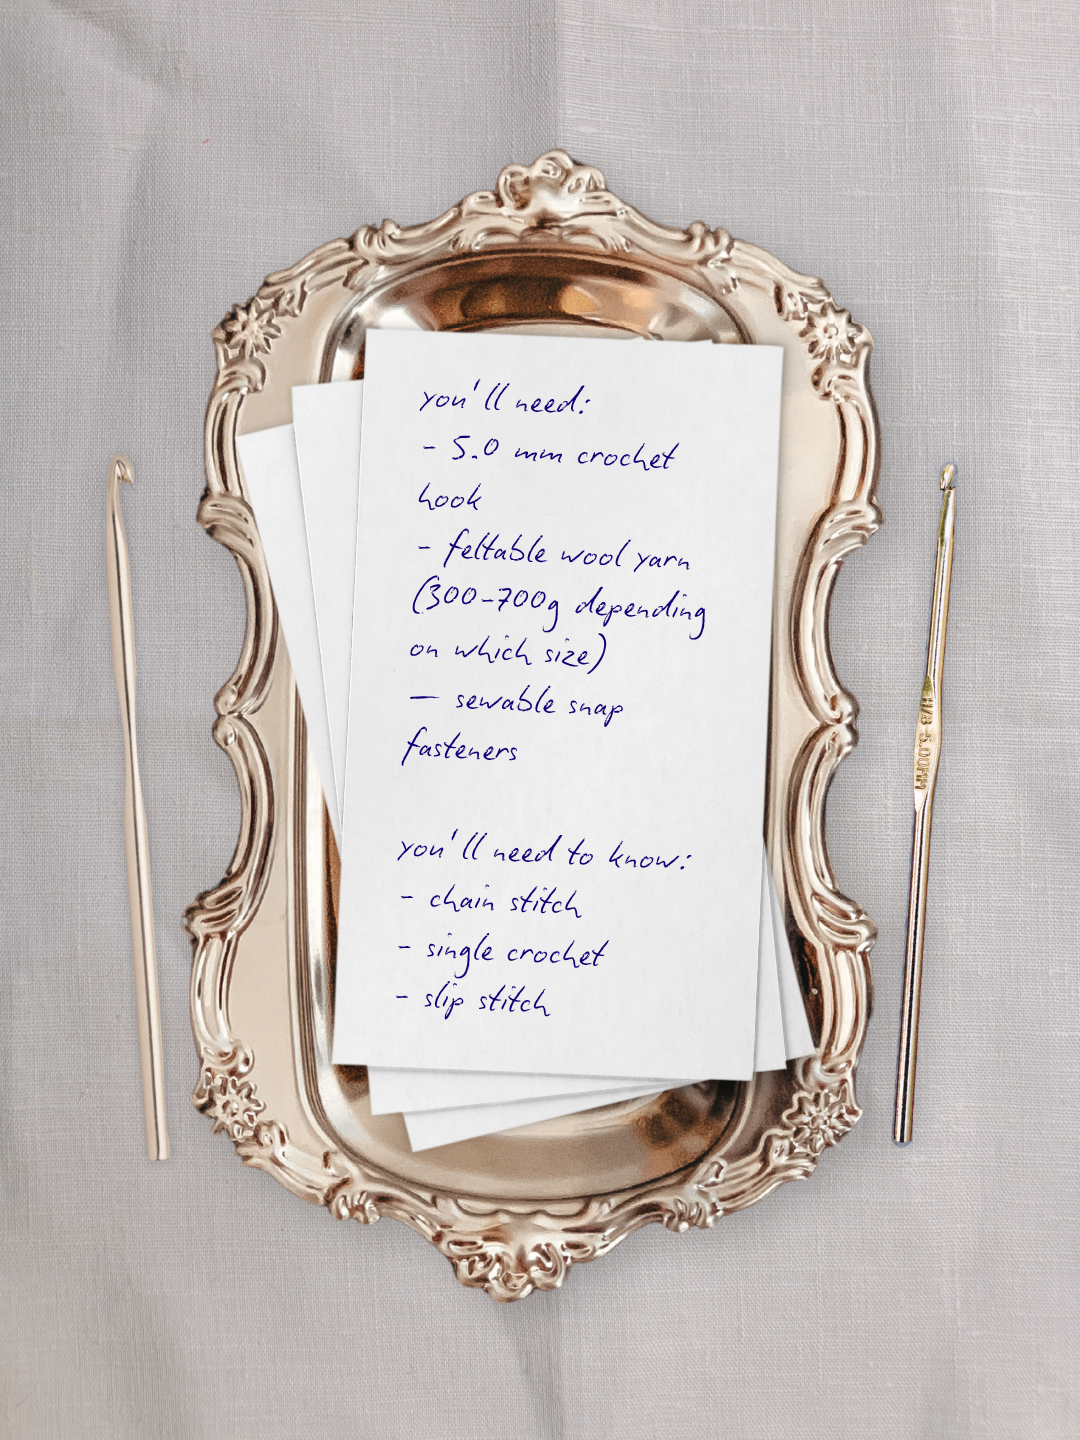 you'll need:
- 5.0 mm crochet
hook
- feltable wool yarn
(300-700g depending
on which size)
— sewable snap
fasteners
you'll need to know:
- chain stitch
- single crochet
- slip stitch
H/8-5.00MM